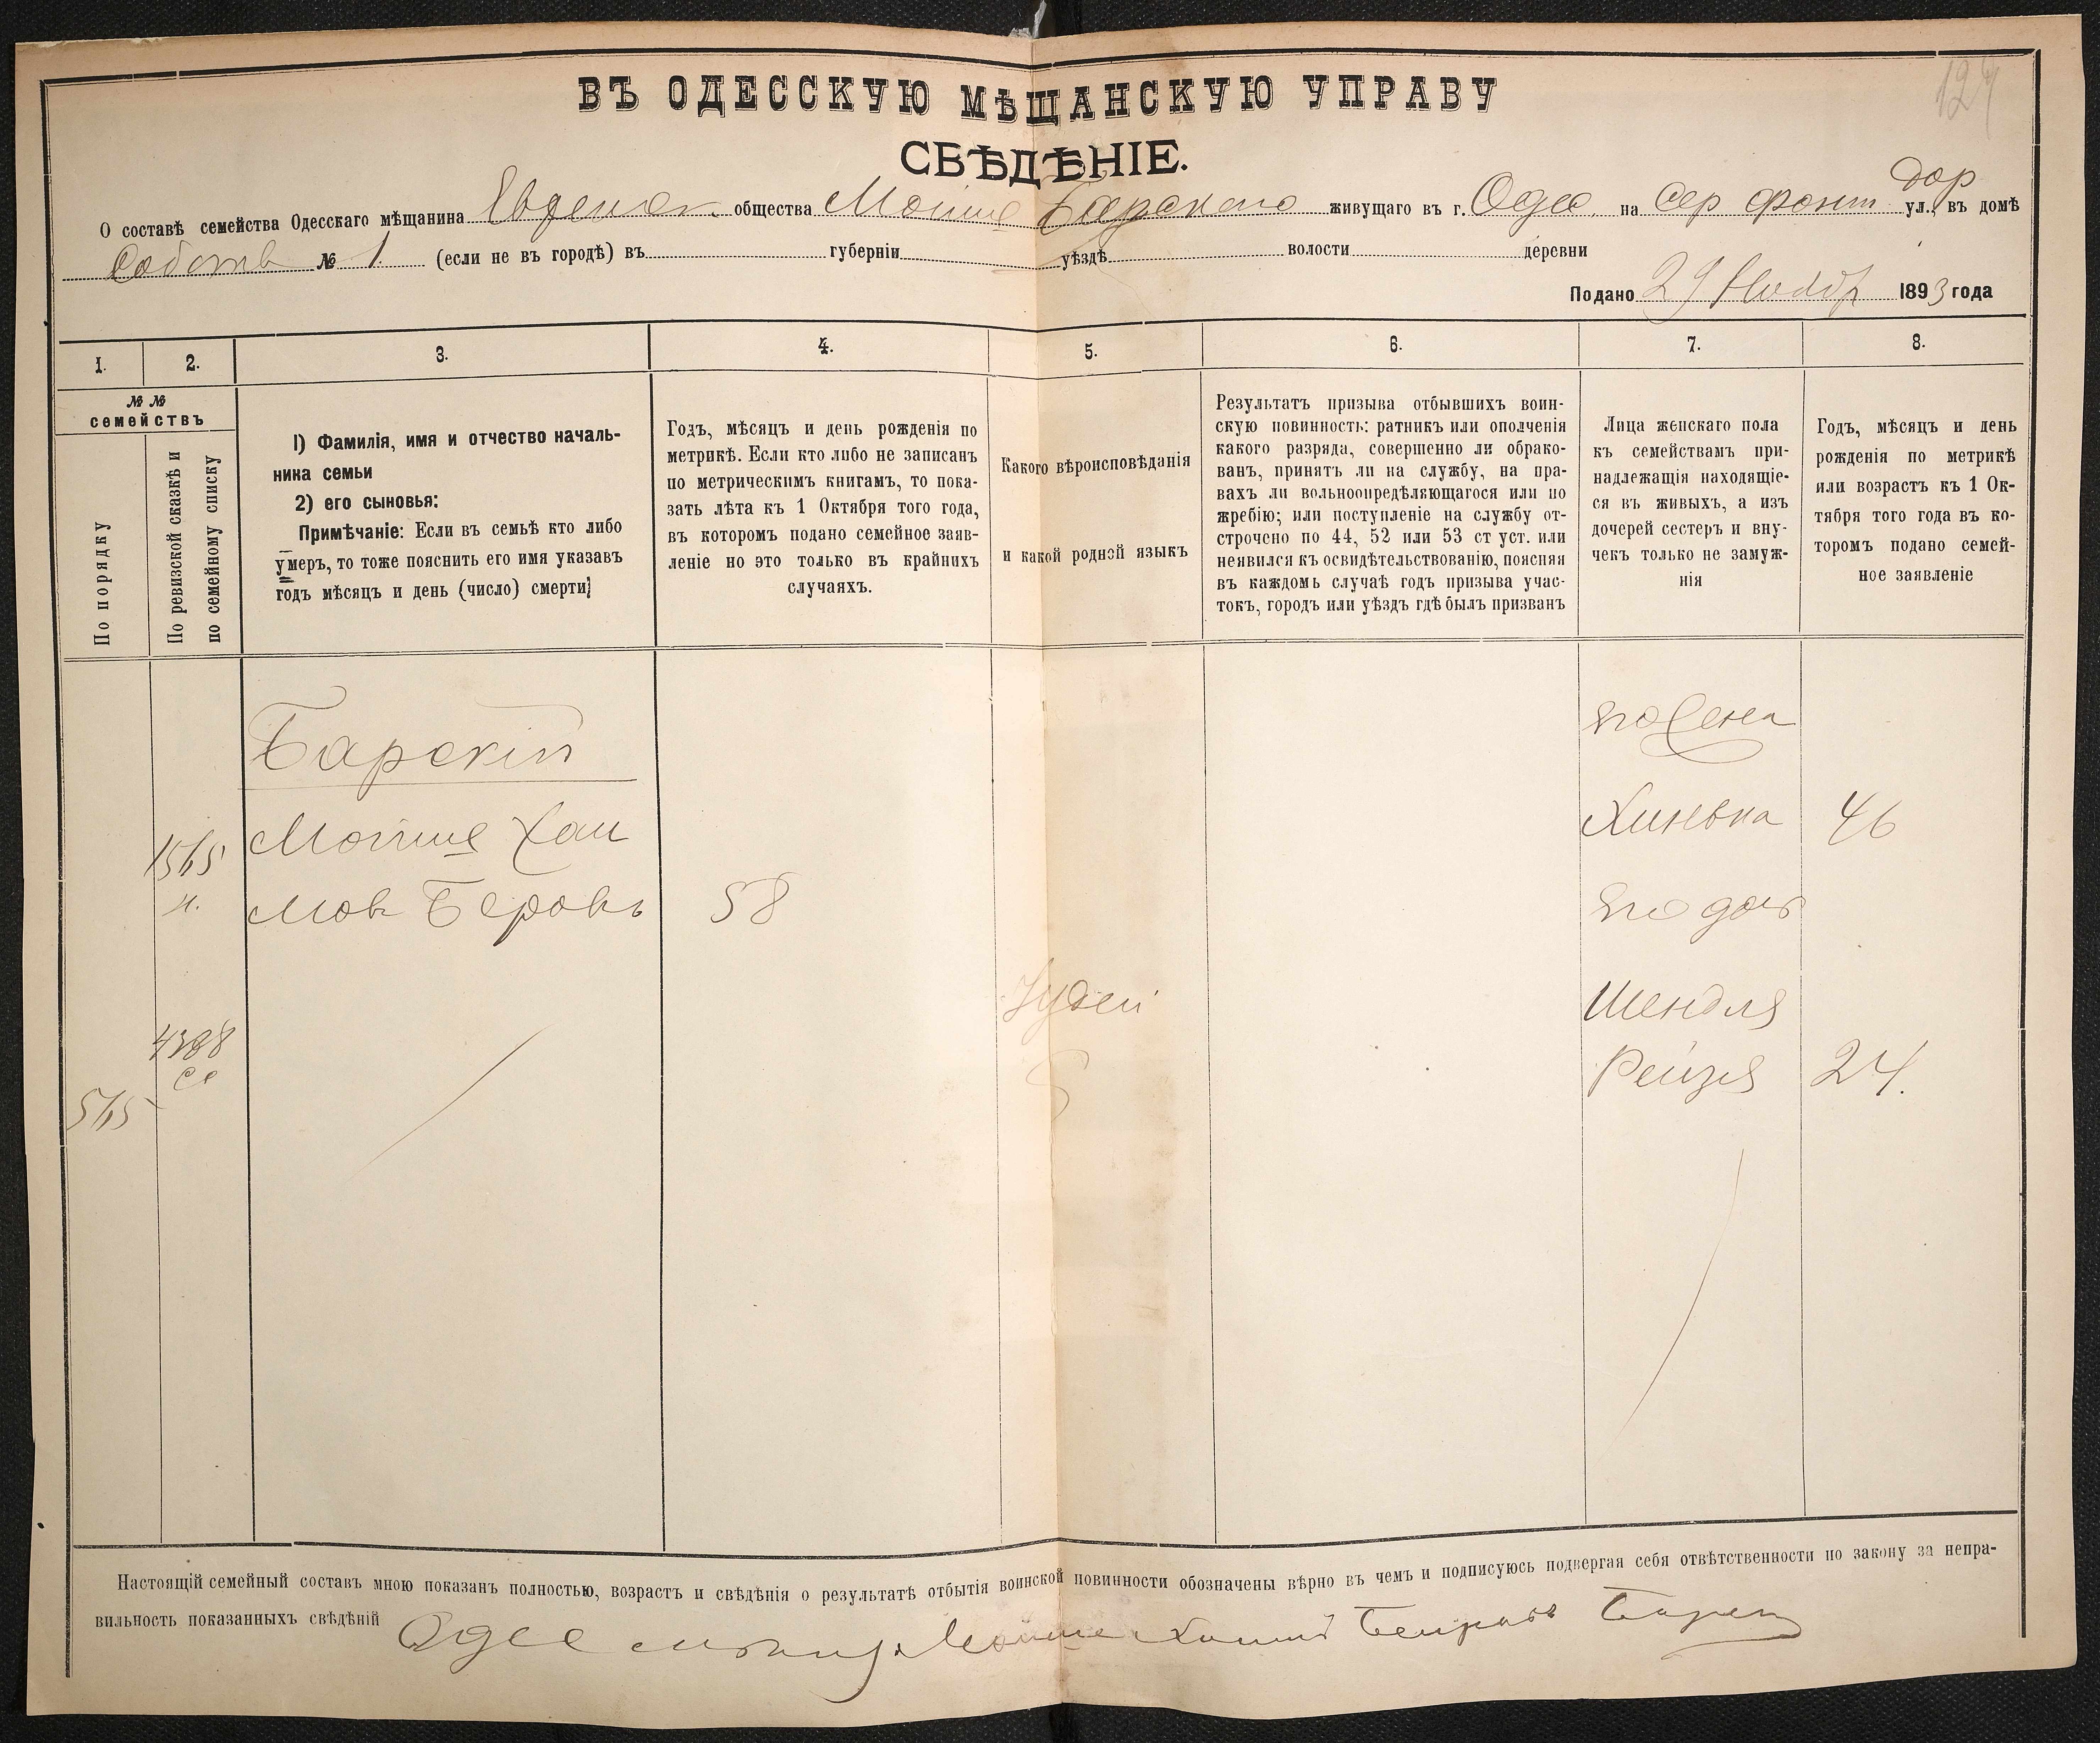 127
ВЪ ОДЕССКУЮ МѢЩАНСКУЮ УПРАВУ
СВѢДѢНІЕ.
О составѣ семейства Одесскаго мѣщанина Еврейск. общества Мойше Барскаго живущаго въ г. Одес. на Сер фонт дор ул., въ домѣ
Собств № 1. (если не въ городѣ) въ губерніи уѣздѣ волости деревни
Подано 29 Ноябр 1893 года
1. 2. 3. 4. 5. 6. 7. 8.
№ №
семействъ
По порядку
По ревизской сказкѣ и
по семейному списку
1) Фамилія, имя и отчество началь-
ника семьи
2) его сыновья:
Примѣчаніе: Если въ семьѣ кто либо
умеръ, то тоже пояснить его имя указавъ
годъ мѣсяцъ и день (число) смерти
Годъ, мѣсяцъ и день рожденія по
метрикѣ. Если кто либо не записанъ
по метрическимъ книгамъ, то пока-
зать лѣта къ 1 Октября того года,
въ которомъ подано семейное заяв-
леніе но это только въ крайнихъ
случаяхъ.
Какого вѣроисповѣданія
и какой родной языкъ
Результатъ призыва отбывшихъ воин-
скую повинность: ратникъ или ополченія
какого разряда, совершенно ли обрако-
ванъ, принятъ ли на службу, на пра-
вахъ ли вольноопредѣляющагося или по
жребію; или поступленіе на службу от-
строчено по 44, 52 или 53 ст уст. или
неявился къ освидѣтельствованію, поясняя
въ каждомъ случаѣ годъ призыва учас-
токъ, городъ или уѣздъ гдѣ былъ призванъ
Лица женскаго пола
къ семействамъ при-
надлежащія находящіе-
ся въ живыхъ, а изъ
дочерей сестеръ и вну-
чекъ только не замуж-
нія
Годъ, мѣсяцъ и день
рожденія по метрикѣ
или возрастъ къ 1 Ок-
тября того года въ ко-
торомъ подано семей-
ное заявленіе
Барскій
его жена
1565 Мойше Хаи
Хинька 46
н. мов Беровъ 58
его доч
Іудей
Шендля
4388
се
Рейзя 24.
565
Настоящій семейный составъ мною показанъ полностью, возрастъ и свѣдѣнія о результатѣ отбытія воинской повинности обозначены вѣрно въ чемъ и подписуюсь подвергая себя отвѣтственности по закону за непра-
вильность показанныхъ свѣдѣній Одес мѣщ. Мойше Хаимъ Беировъ Барск